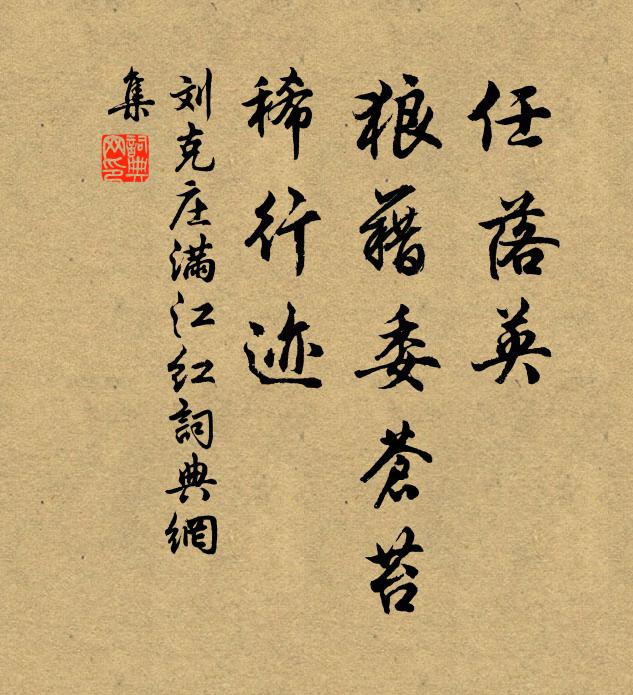 任落英
狼藉委蒼苔
稀行迹
刘克庄满江红詞典網
集
詞典网印